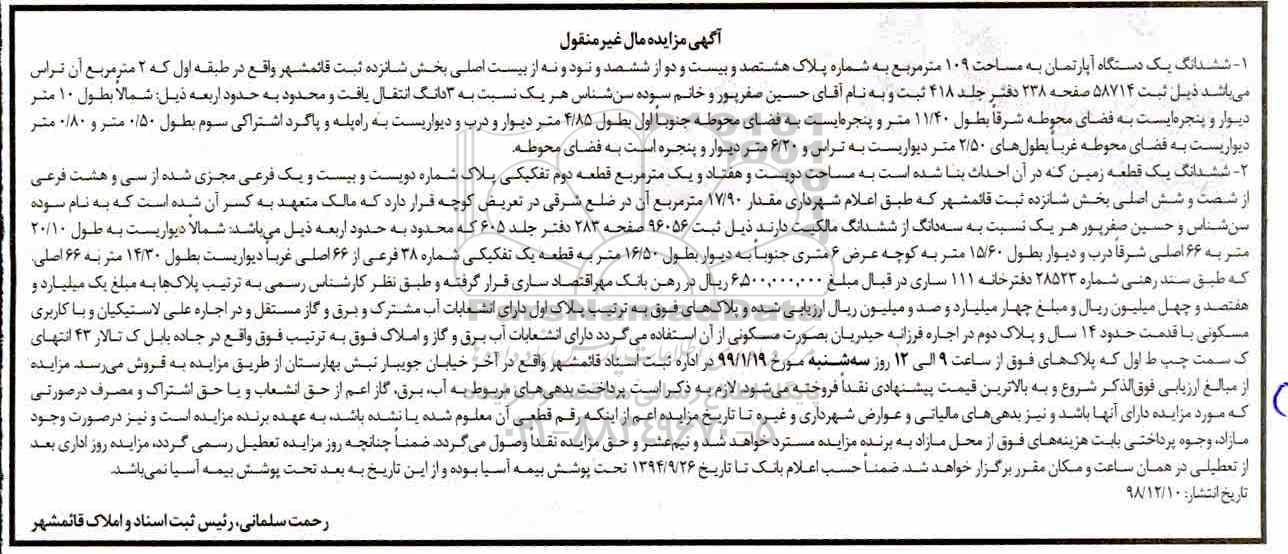 آگهی مزایده مال غیرمنقول
۱- ششدانگ یک دستگاه آپارتمان به مساحت ۱۰۹ مترمربع به شماره پلاک هشتصد و بیست و دو از ششصد و نود و نه از بیست اصلی بخش شانزده ثبت قائمشهر واقع در طبقه اول که ۲ مترمربع آن تراس
می‌باشد ذیل ثبت ۵۸۷۱۴ صفحه ۲۳۸ دفتر جلد ۴۱۸ ثبت و به نام آقای حسین صفرپور و خانم سوده سن‌شناس هر یک نسبت به ۳دانگ انتقال یافت و محدود به حدود اربعه ذیل: شمالاً بطول ۱۰ متر
دیوار و پنجره‌ایست به فضای محوطه شرقاً بطول ۱۱/۴۰ متر و پنجره‌ایست به فضای محوطه جنوباً اول بطول ۴/۸۵ متر دیوار و درب و دیواریست به راه‌پله و پاگرد اشتراکی سوم بطول ۰/۵۰ متر و ۰/۸۰ متر
دیواریست به فضای محوطه غرباً بطول‌های ۲/۵۰ متر دیواریست به تراس و ۶/۲۰ متر دیوار و پنجره است به فضای محوطه.
۲- ششدانگ یک قطعه زمین که در آن احداث بنا شده است به مساحت دویست و هفتاد و یک مترمربع قطعه دوم تفکیکی پلاک شماره دویست و بیست و یک فرعی مجزی شده از سی و هشت فرعی
از شصت و شش اصلی بخش شانزده ثبت قائمشهر که طبق اعلام شهرداری مقدار ۱۷/۹۰ مترمربع آن در ضلع شرقی در تعریض کوچه قرار دارد که مالک متعهد به کسر آن شده است که به نام سوده
سن‌شناس و حسین صفرپور هر یک نسبت به سه‌دانگ از ششدانگ مالکیت دارند ذیل ثبت ۹۶۰۵۶ صفحه ۲۸۳ دفتر جلد ۶۰۵ که محدود به حدود اربعه ذیل می‌باشد: شمالاً دیواریست به طول ۲۰/۱۰
متر به ۶۶ اصلی شرقاً درب و دیوار بطول ۱۵/۶۰ متر به کوچه عرض ۶ متری جنوباً به دیوار بطول ۱۶/۵۰ متر به قطعه یک تفکیکی شماره ۳۸ فرعی از ۶۶ اصلی غرباً دیواریست بطول ۱۴/۳۰ متر به ۶۶ اصلی.
که طبق سند رهنی شماره ۲۸۵۲۳ دفترخانه ۱۱۱ ساری در قبال مبلغ ۶,۵۰۰,۰۰۰,۰۰۰ ریال در رهن بانک مهراقتصاد ساری قرار گرفته و طبق نظر کارشناس رسمی به ترتیب پلاک‌ها به مبلغ یک میلیارد و
هفتصد و چهل میلیون ریال و مبلغ چهار میلیارد و صد و میلیون ریال ارزیابی شده و پلاک‌های فوق به ترتیب پلاک اول دارای انشعابات آب مشترک و برق و گاز مستقل و در اجاره علی لاستیکیان و با کاربری
مسکونی با قدمت حدود ۱۴ سال و پلاک دوم در اجاره فرزانه حیدریان بصورت مسکونی از آن استفاده می‌گردد دارای انشعابات آب برق و گاز و املاک فوق به ترتیب فوق واقع در جاده بابل ک تالار ۴۳ انتهای
ک سمت چپ ط اول که پلاک‌های فوق از ساعت ۹ الی ۱۲ روز سه‌شنبه مورخ ۹۹/۱/۱۹ در اداره ثبت اسناد قائمشهر واقع در آخر خیابان جویبار نبش بهارستان از طریق مزایده به فروش می‌رسد. مزایده
از مبالغ ارزیابی فوق‌الذکر شروع و به بالاترین قیمت پیشنهادی نقداً فروخته می‌شود. لازم به ذکر است پرداخت بدهی‌های مربوط به آب، برق، گاز اعم از حق انشعاب و یا حق اشتراک و مصرف درصورتی
که مورد مزایده دارای آنها باشد و نیز بدهی‌های مالیاتی و عوارض شهرداری و غیره تا تاریخ مزایده اعم از اینکه رقم قطعی آن معلوم شده یا نشده باشد، به عهده برنده مزایده است و نیز درصورت وجود
مازاد، وجوه پرداختی بابت هزینه‌های فوق از محل مازاد به برنده مزایده مسترد خواهد شد و نیم‌عشر و حق مزایده نقداً وصول می‌گردد. ضمناً چنانچه روز مزایده تعطیل رسمی گردد، مزایده روز اداری بعد
از تعطیلی در همان ساعت و مکان مقرر برگزار خواهد شد. ضمناً حسب اعلام بانک تا تاریخ ۱۳۹۴/۹/۲۶ تحت پوشش بیمه آسیا بوده و از این تاریخ به بعد تحت پوشش بیمه آسیا نمی‌باشد.
تاریخ انتشار: ۹۸/۱۲/۱۰
رحمت سلمانی، رئیس ثبت اسناد و املاک قائمشهر